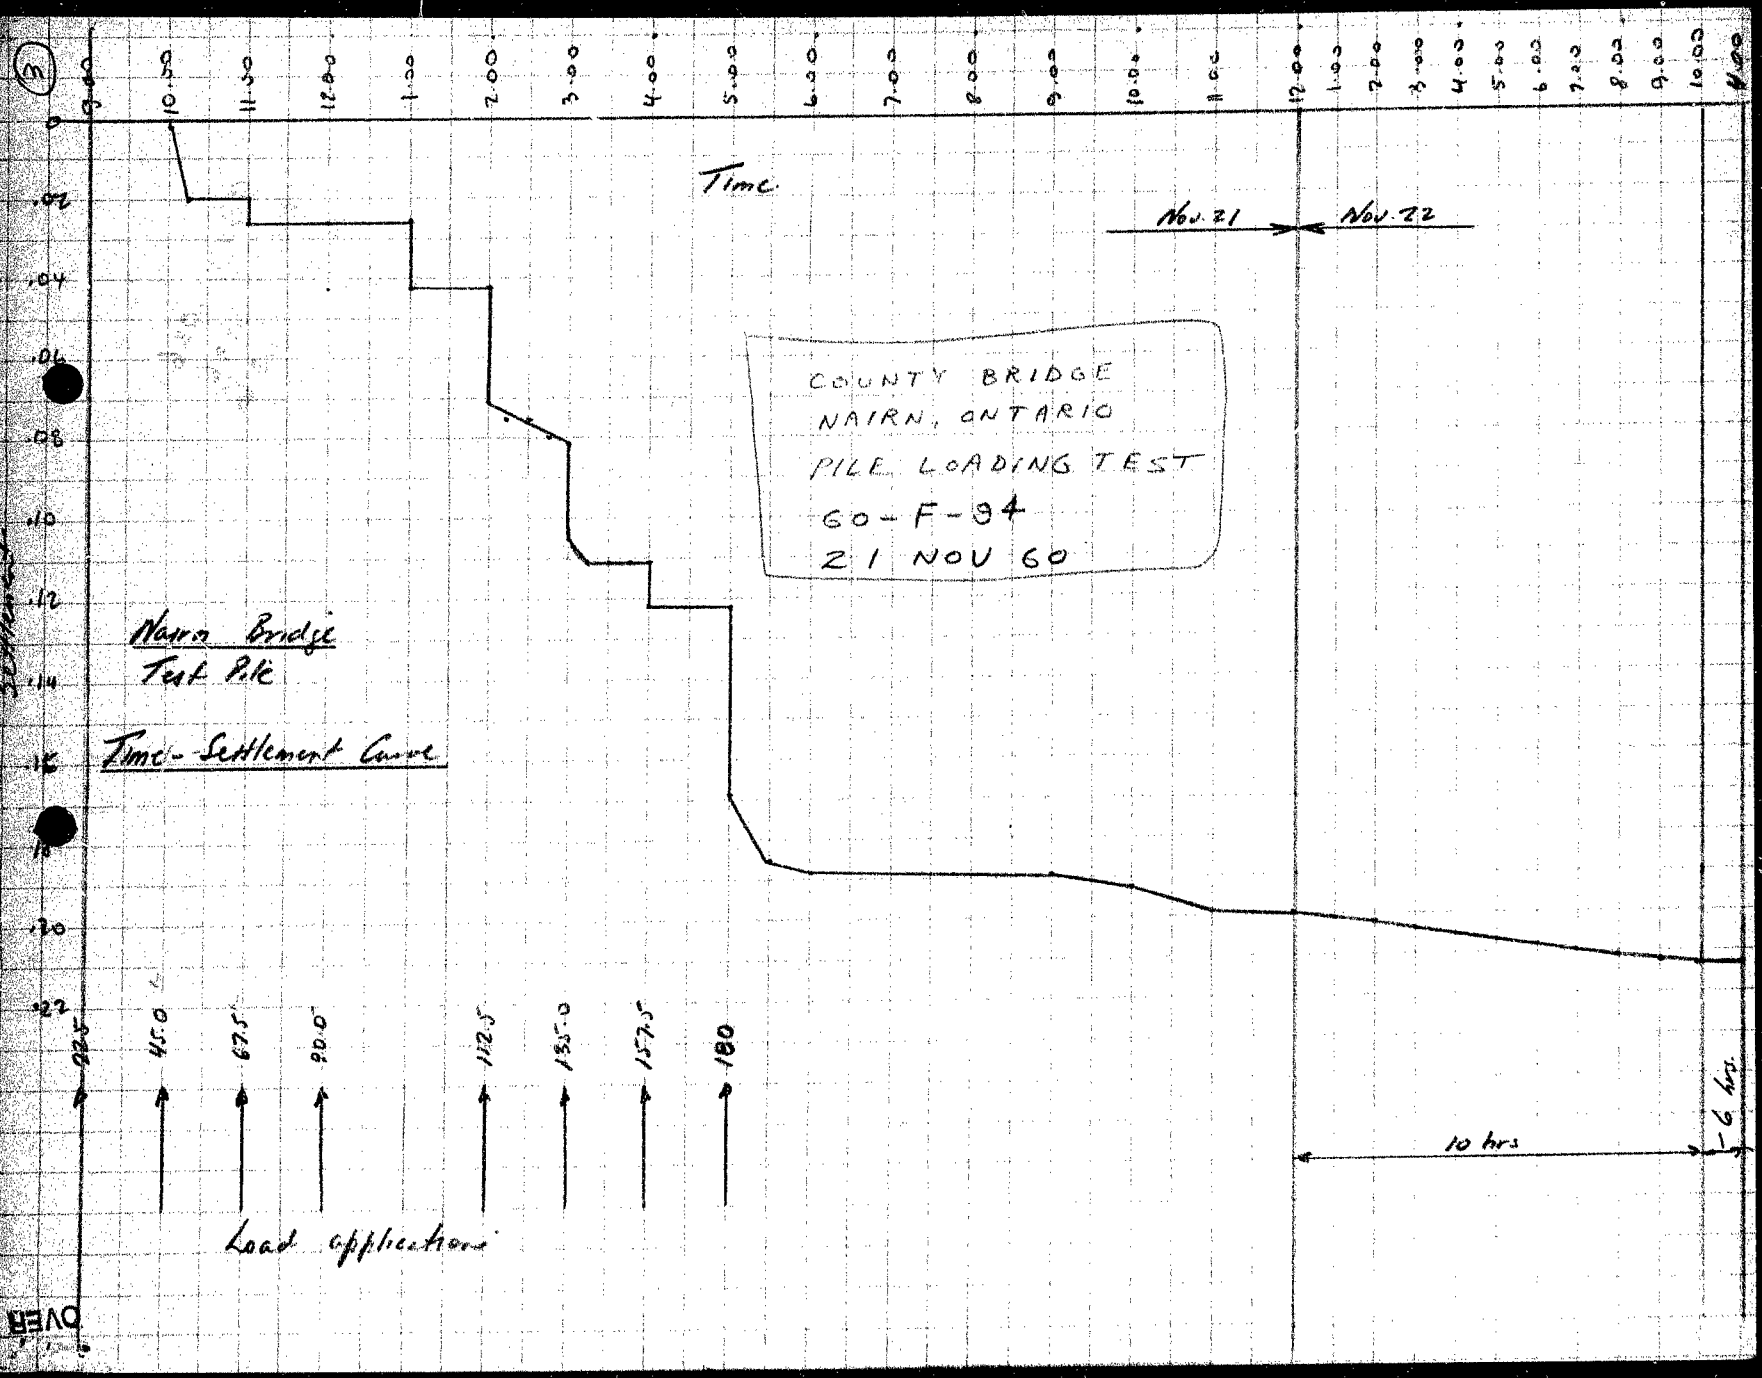 3
9.00 10.00 11.00 12.00 1.00 2.00 3.00 4.00 5.00 6.00 7.00 8.00 9.00 10.00 11.00 12.00 1.00 2.00 3.00 4.00 5.00 6.00 7.00 8.00 9.00 10.00
0
.02
.04
.06
.08
.10
.12
.14
.16
.18
.20
.22
Settlement
Time
Nov. 21 Nov. 22
COUNTY BRIDGE
NAIRN, ONTARIO
PILE LOADING TEST
60-F-94
21 NOV 60
Nairn Bridge
Test Pile
Time-Settlement Curve
22.5 45.0 67.5 90.0 112.5 135.0 157.5 180
Load applications
10 hrs
6 hrs.
OVER